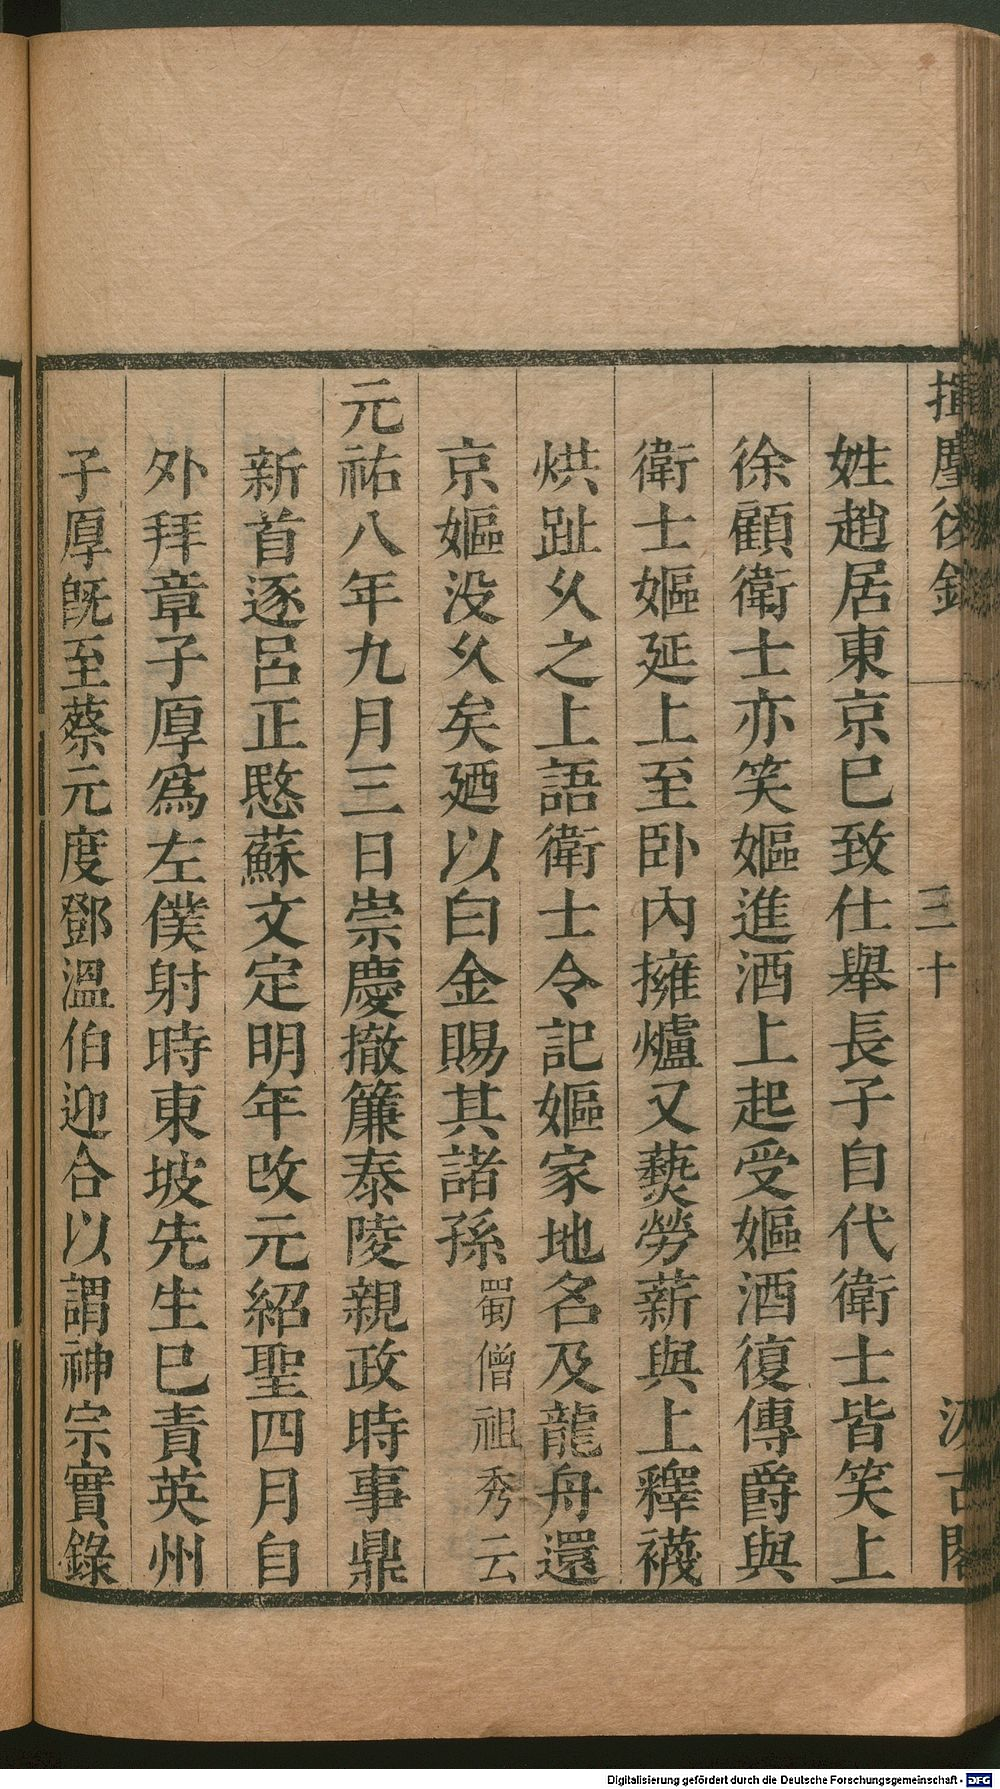 揮麈後錄
三十
汲古閣
姓趙居東京已致仕舉長子自代衛士皆笑上
徐顧衛士亦笑嫗進酒上起受嫗酒復傳爵與
衛士嫗延上至卧內擁爐又爇勞薪與上釋襪
烘趾乆之上語衛士令記嫗家地名及龍舟還
京嫗没乆矣廼以白金賜其諸孫蜀僧祖秀云
元祐八年九月三日崇慶撤簾泰陵親政時事鼎
新首逐呂正愍蘇文定明年改元紹聖四月自
外拜章子厚爲左僕射時東坡先生已責英州
子厚旣至蔡元度鄧溫伯迎合以謂神宗實錄
Digitalisierung gefördert durch die Deutsche Forschungsgemeinschaft - DFG